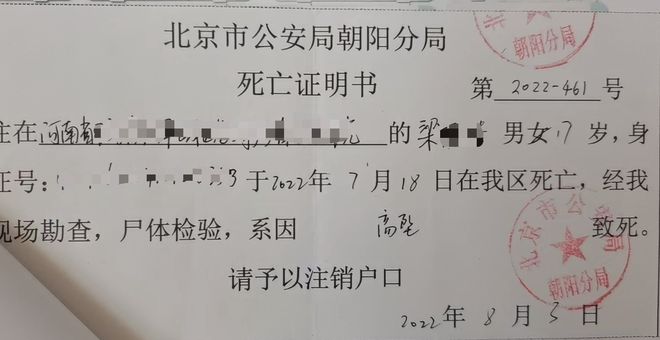 北京市公安局朝阳分局
死亡证明书
第 2022-461 号
朝阳分局
住在河南省 的梁 男女17岁,身
证号: 3于2022年7月18日在我区死亡,经我
现场勘查,尸体检验,系因 高坠 致死。
北京市公安局
朝阳分局
请予以注销户口
2022年8月3日